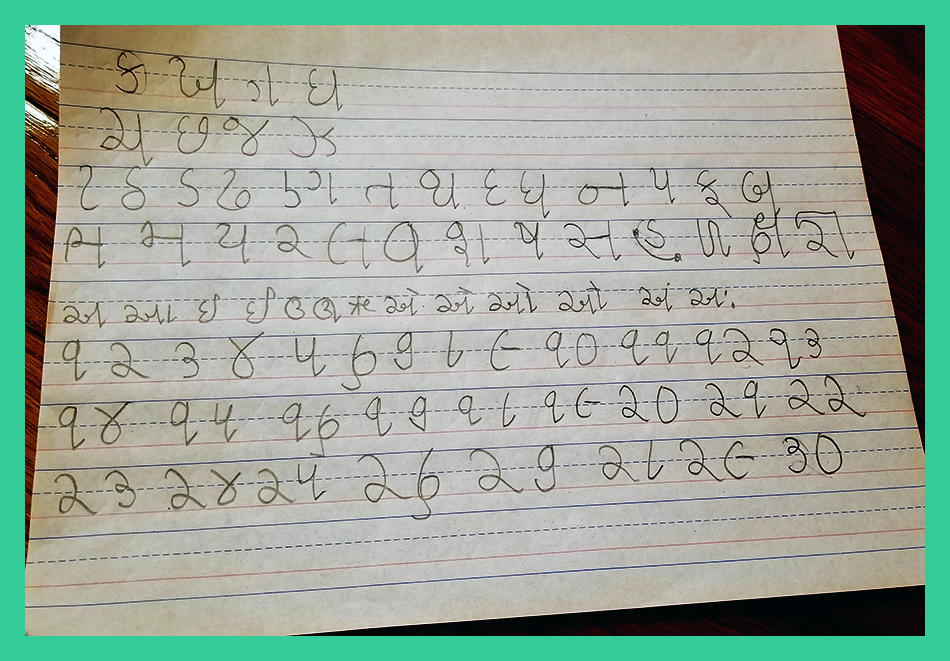 ક ખ ગ ઘ
ચ છ જ ઝ
ટ ઠ ડ ઢ ણ ત થ દ ધ ન પ ફ બ
ભ મ ય ર લ વ શ ષ સ હ ળ ક્ષ જ્ઞ
અ આ ઇ ઈ ઉ ઊ ઋ એ ઐ ઓ ઔ અં અઃ
૧ ૨ ૩ ૪ ૫ ૬ ૭ ૮ ૯ ૧૦ ૧૧ ૧૨ ૧૩
૧૪ ૧૫ ૧૬ ૧૭ ૧૮ ૧૯ ૨૦ ૨૧ ૨૨
૨૩ ૨૪ ૨૫ ૨૬ ૨૭ ૨૮ ૨૯ ૩૦